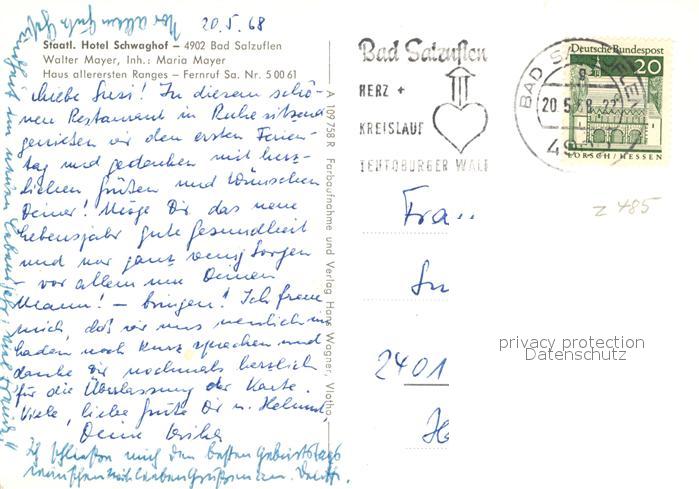 Vor allem Gute
20.5.68
Staatl. Hotel Schwaghof – 4902 Bad Salzuflen
Walter Mayer, Inh.: Maria Mayer
Haus allerersten Ranges – Fernruf Sa. Nr. 5 00 61
Liebe Susi! In diesem schö-
nen Restaurant in Ruhe sitzend
genießen wir den ersten Ferien-
tag und gedenken mit herz-
lichen Grüßen und Wünschen
Deiner! Möge Dir das neue
Lebensjahr gute Gesundheit
und nur ganz wenig Sorgen
– vor allem um Deinen
Mann! – bringen! Ich freue
mich, daß wir uns neulich
haben noch kurz sprechen und
danke Dir nochmals herzlich
für die Überlassung der Karte.
Viele, liebe Grüße Dir u. Helmut,
Deine
Ich schließe mich den besten Geburtstags
wünschen
im neuen Lebensjahr!
A 109 758 R Farbaufnahme und Verlag Hans Wagner, Vlotho
Bad Salzuflen
HERZ +
KREISLAUF
TEUTOBURGER WALD
BAD SALZUFLEN
20.5.68
Deutsche Bundespost
20
LORSCH/HESSEN
z 485
Fra
Su
2401
privacy protection
Datenschutz